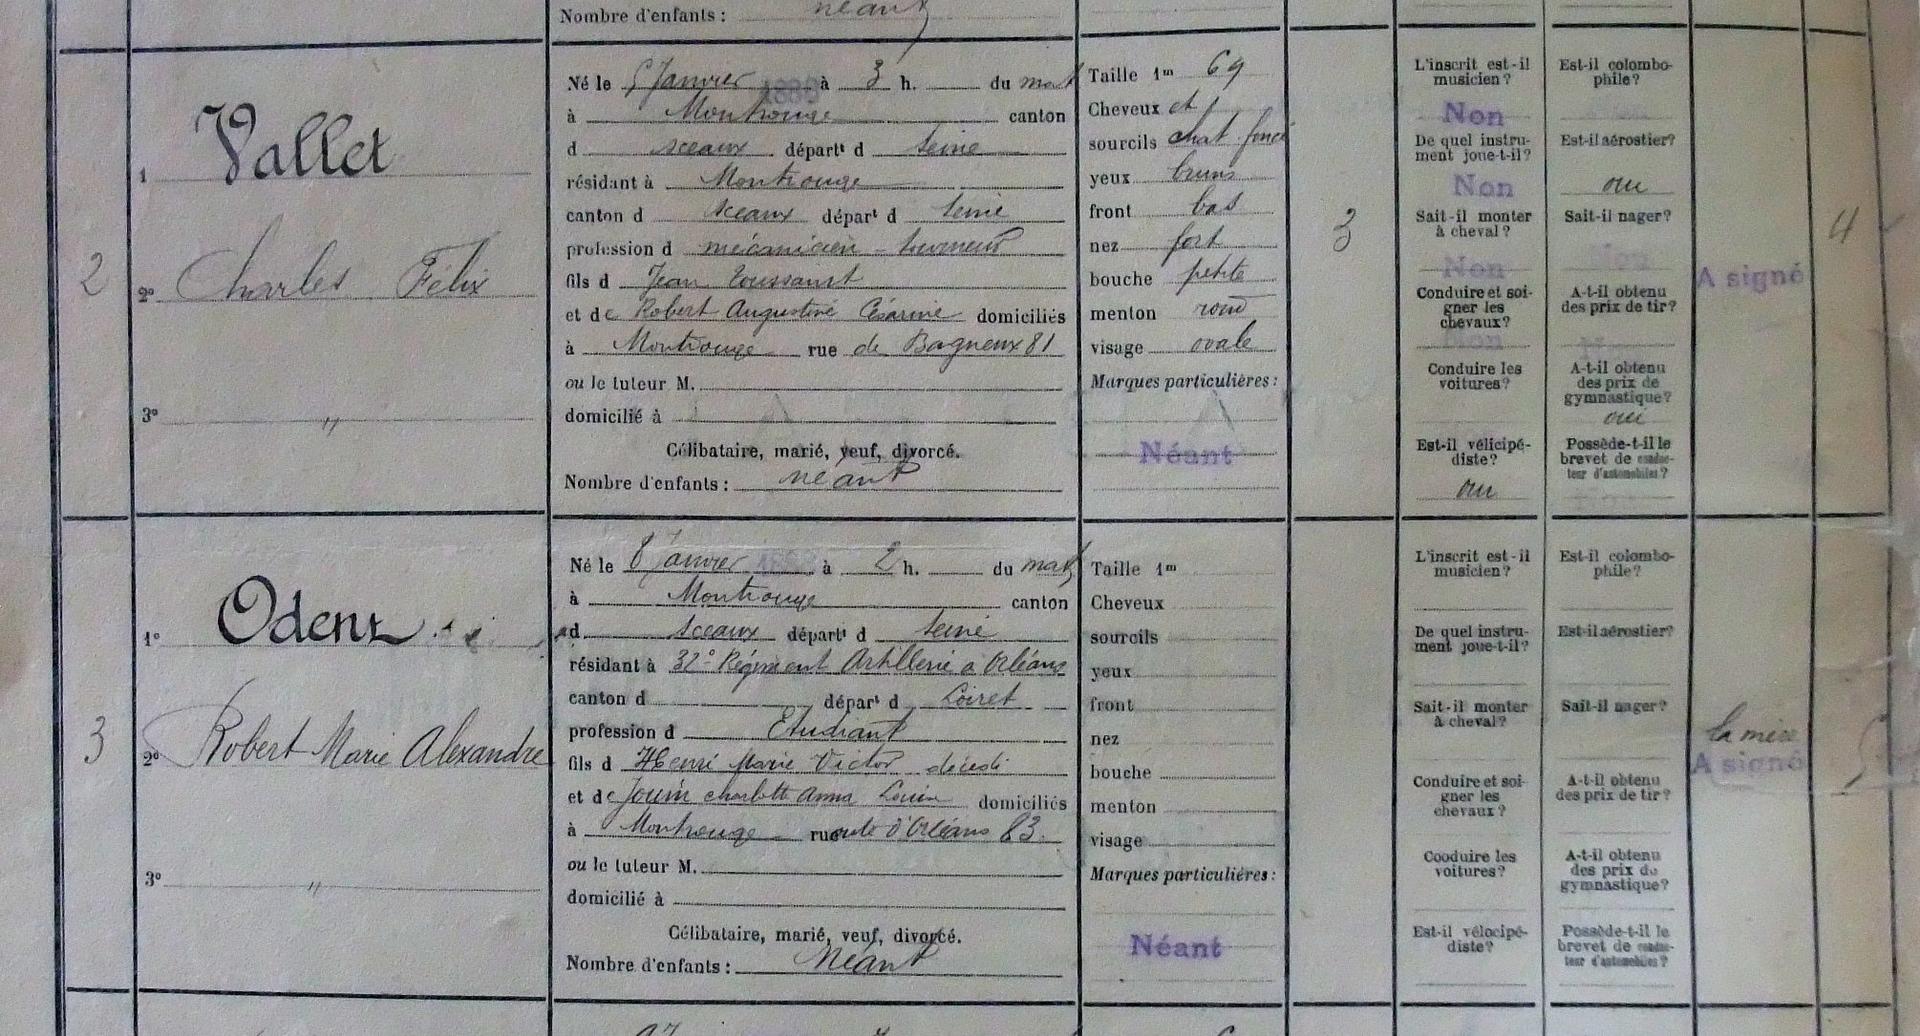 Nombre d'enfants : néant
2
1 Vallet
2º Charles Félix
3º "
Né le 5 Janvier à 3 h. du mat
à Montrouge canton
d sceaux départt d Seine
résidant à Montrouge
canton d sceaux départ d Seine
profession d mécanicien - tourneur
fils d Jean Toussaint
et de Robert Augustine Césarine domiciliés
à Montrouge rue de Bagneux 81
ou le tuteur M.
domicilié à
Célibataire, marié, veuf, divorcé.
Nombre d'enfants : néant
Taille 1m 69
Cheveux et
sourcils chat foncé
yeux bruns
front bas
nez fort
bouche petite
menton rond
visage ovale
Marques particulières :
Néant
3
L'inscrit est-il
musicien ?
Non
De quel instru-
ment joue-t-il ?
Non
Sait-il monter
à cheval ?
Non
Conduire et soi-
gner les
chevaux ?
Non
Conduire les
voitures ?
Est-il vélicipé-
diste ?
oui
Est-il colombo-
phile ?
Est-il aérostier ?
oui
Sait-il nager ?
A-t-il obtenu
des prix de tir ?
A-t-il obtenu
des prix de
gymnastique ?
oui
Possède-t-il le
brevet de conduc-
teur d'automobiles ?
A signé
4
3
1º Odent
2º Robert Marie Alexandre
3º "
Né le 8 Janvier à 2 h. du mat
à Montrouge canton
d sceaux départt d Seine
résidant à 32º Régiment Artillerie à Orléans
canton d départ d Loiret
profession d Etudiant
fils d Henri Marie Victor décédé
et de Jouin charlotte Anna domiciliés
à Montrouge rue route d'Orléans 83
ou le tuteur M.
domicilié à
Célibataire, marié, veuf, divorcé.
Nombre d'enfants : Néant
Taille 1m
Cheveux
sourcils
yeux
front
nez
bouche
menton
visage
Marques particulières :
Néant
L'inscrit est-il
musicien ?
De quel instru-
ment joue-t-il ?
Sait-il monter
à cheval ?
Conduire et soi-
gner les
chevaux ?
Cooduire les
voitures ?
Est-il vélocipé-
diste ?
Est-il colombo-
phile ?
Est-il aérostier ?
Sait-il nager ?
A-t-il obtenu
des prix de tir ?
A-t-il obtenu
des prix de
gymnastique ?
Possède-t-il le
brevet de conduc-
teur d'automobiles ?
la mère
A signé